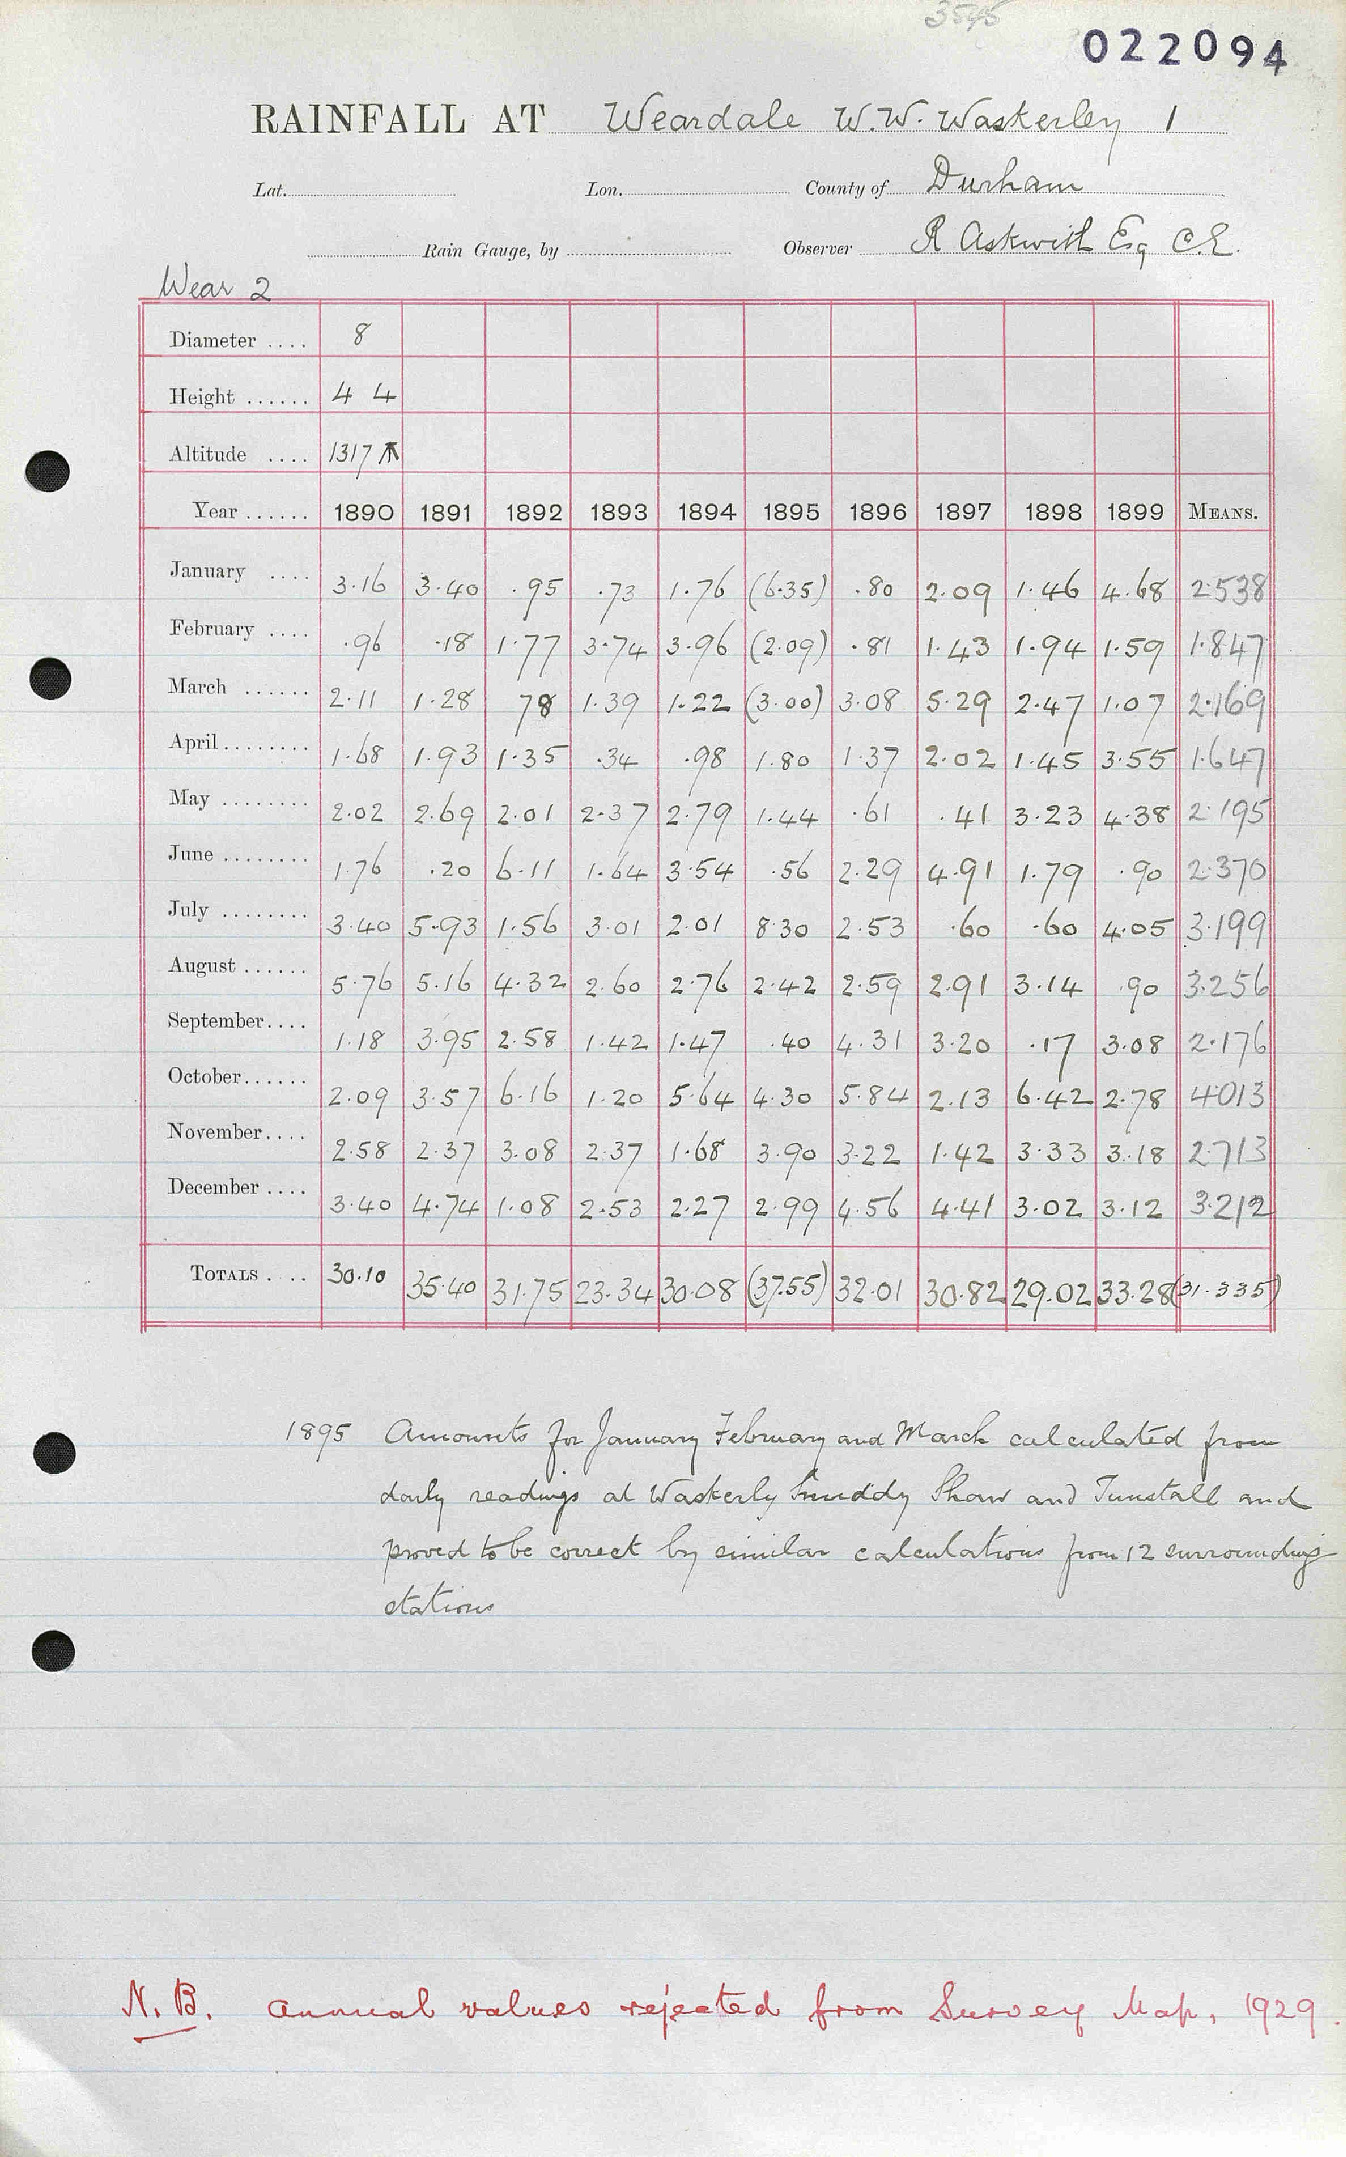 3545
022094
RAINFALL AT Weardale W.W. Waskerley 1
Lat. Lon. County of Durham
Rain Gauge, by Observer R Askwith Esq C.E.
Wear 2
Diameter .... 8
Height ...... 4 4
Altitude .... 1317
Year ...... 1890 1891 1892 1893 1894 1895 1896 1897 1898 1899 MEANS.
January .... 3.16 3.40 .95 .73 1.76 (6.35) .80 2.09 1.46 4.68 2.538
February .... .96 .18 1.77 3.74 3.96 (2.09) .81 1.43 1.94 1.59 1.847
March ...... 2.11 1.28 78 1.39 1.22 (3.00) 3.08 5.29 2.47 1.07 2.169
April ........ 1.68 1.93 1.35 .34 .98 1.80 1.37 2.02 1.45 3.55 1.647
May ........ 2.02 2.69 2.01 2.37 2.79 1.44 .61 .41 3.23 4.38 2.195
June ........ 1.76 .20 6.11 1.64 3.54 .56 2.29 4.91 1.79 .90 2.370
July ........ 3.40 5.93 1.56 3.01 2.01 8.30 2.53 .60 .60 4.05 3.199
August ...... 5.76 5.16 4.32 2.60 2.76 2.42 2.59 2.91 3.14 .90 3.256
September .... 1.18 3.95 2.58 1.42 1.47 .40 4.31 3.20 .17 3.08 2.176
October ...... 2.09 3.57 6.16 1.20 5.64 4.30 5.84 2.13 6.42 2.78 4.013
November .... 2.58 2.37 3.08 2.37 1.68 3.90 3.22 1.42 3.33 3.18 2.713
December .... 3.40 4.74 1.08 2.53 2.27 2.99 4.56 4.41 3.02 3.12 3.212
TOTALS .... 30.10 35.40 31.75 23.34 30.08 (37.55) 32.01 30.82 29.02 33.28 (31.335)
1895 Amounts for January February and March calculated from
daily readings at Waskerly Smiddy Shaw and Tunstall and
proved to be correct by similar calculations from 12 surrounding
stations
N.B. Annual values rejected from Survey Map, 1929.